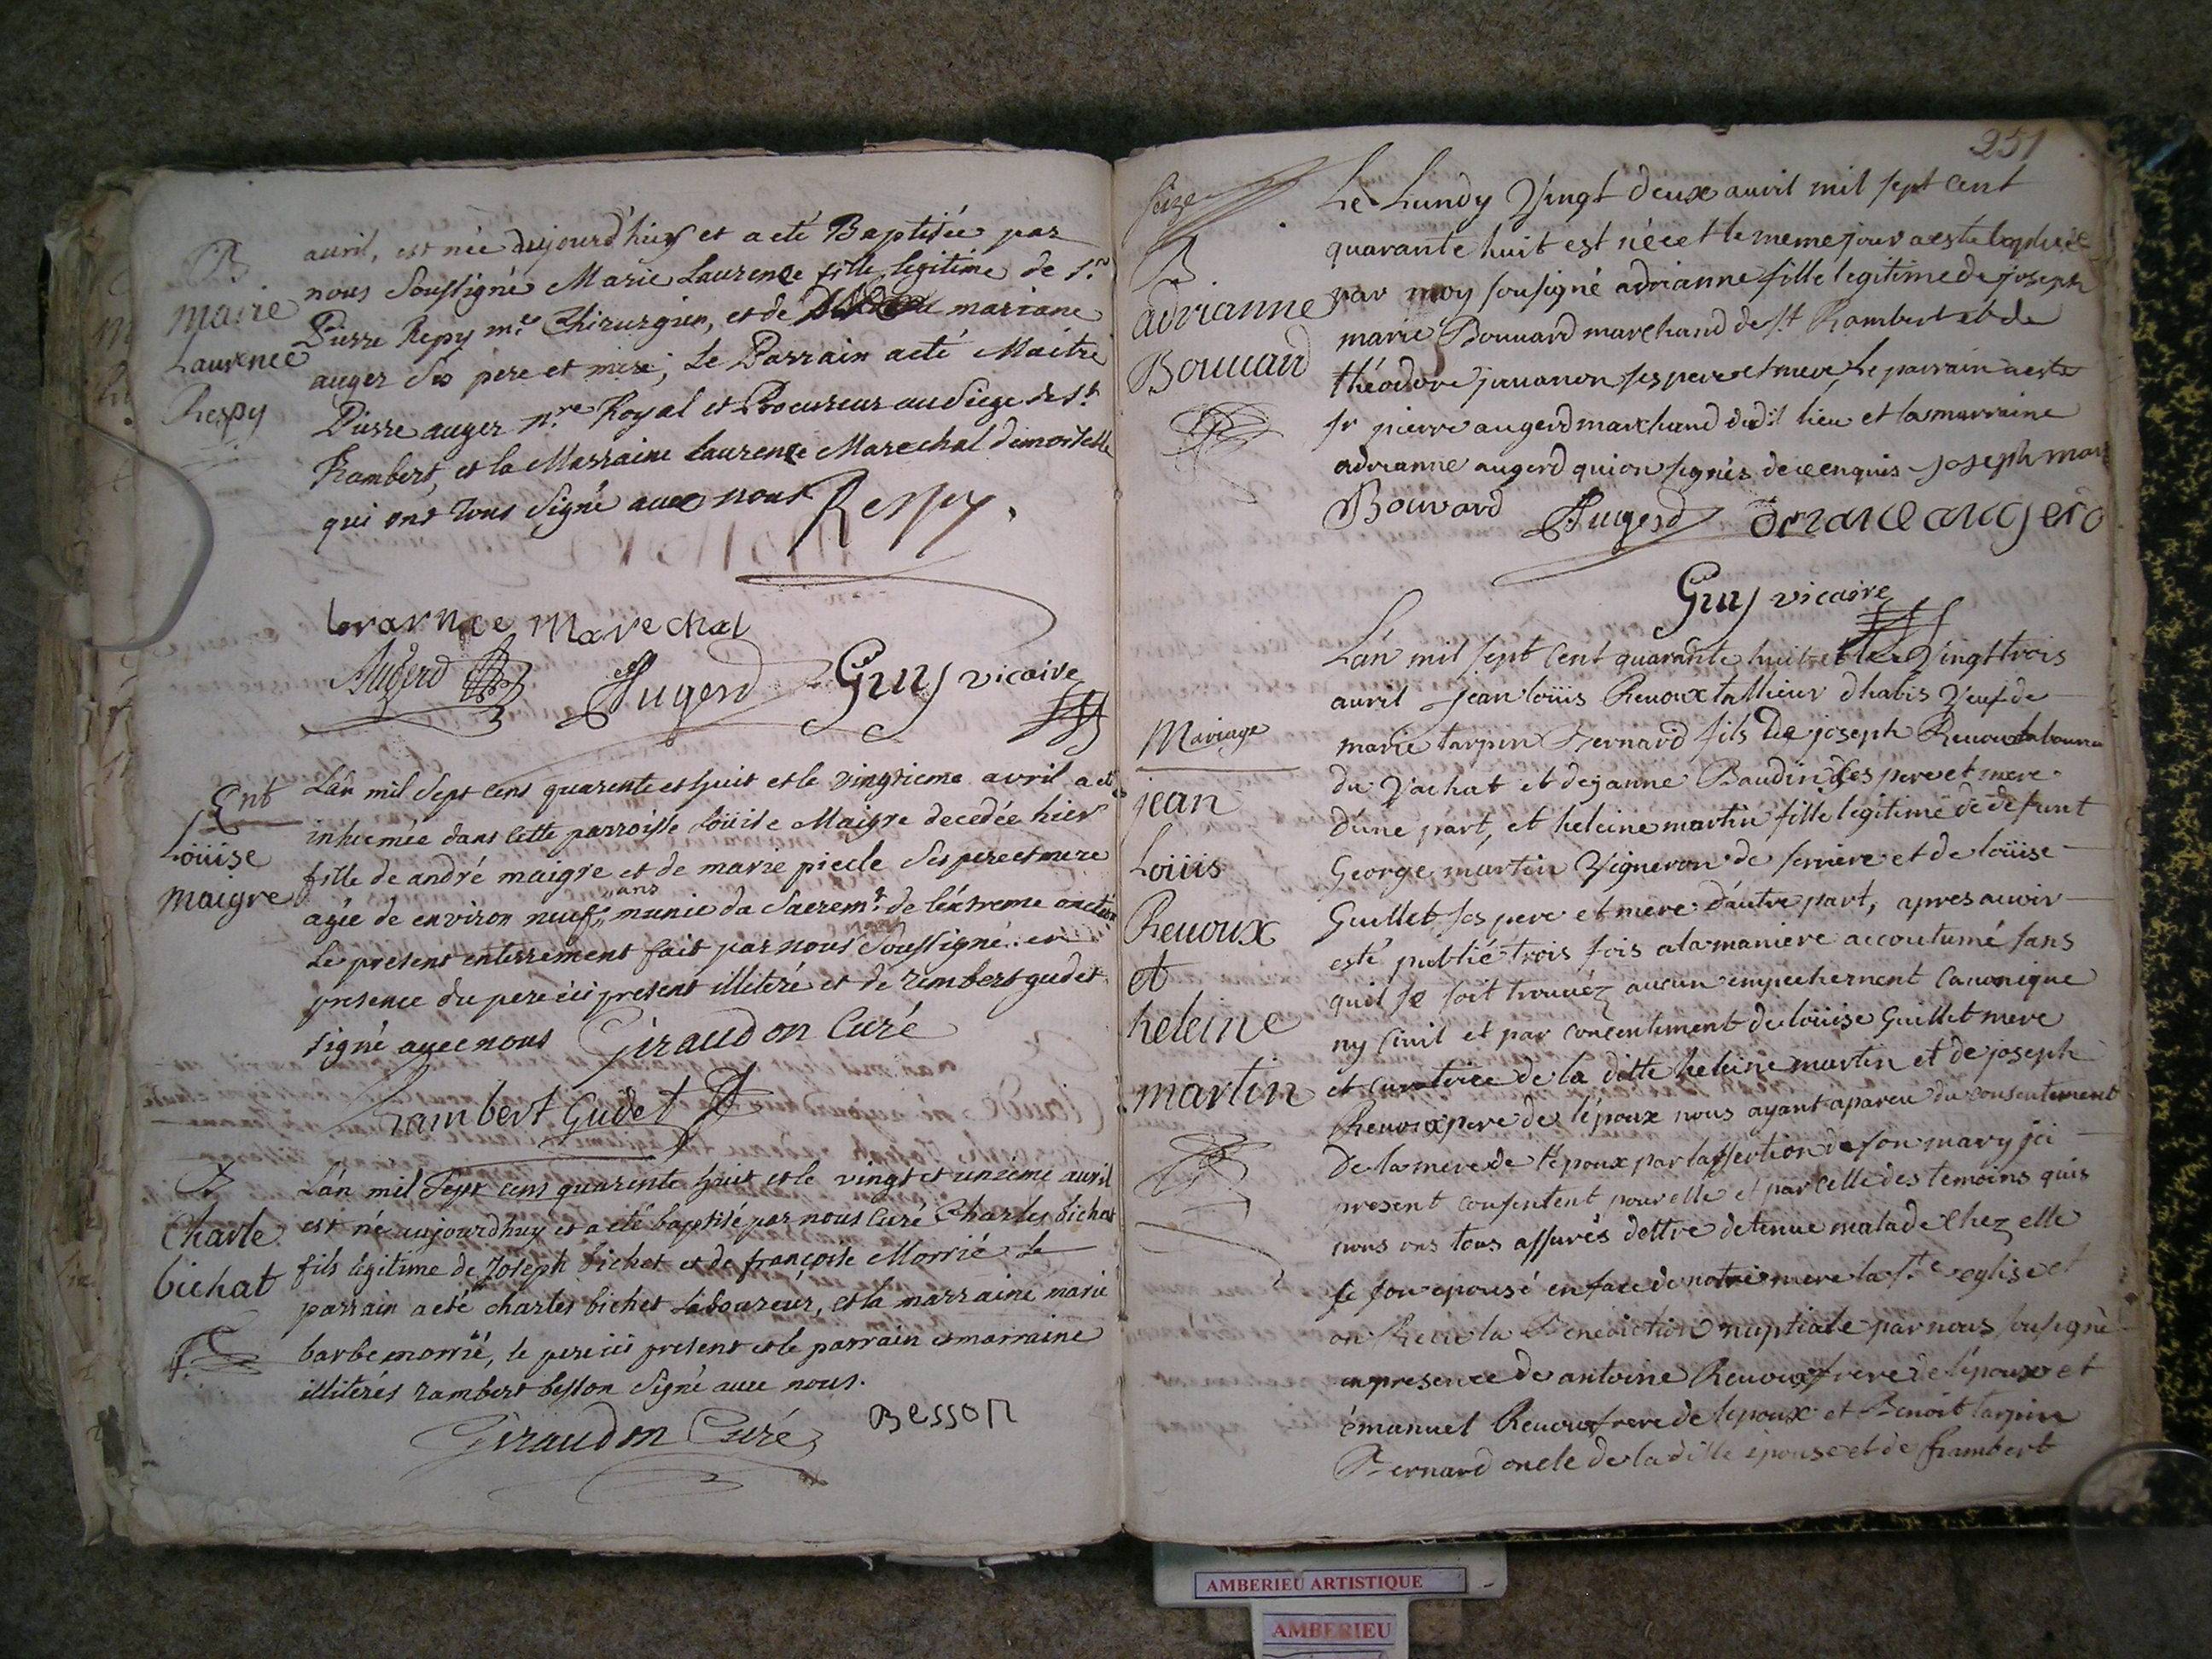 B
Maire
Laurence
Respy
avril, est née aujourd'huy et a eté Baptisée par
nous Soussigné Marie Laurence fille legitime de s.r
Pierre Repy m.e Chirurgien, et de mariane
auger Ses pere et mere; Le Parrain a eté Maitre
Pierre auger n.re Royal et Procureur au Siege de s.t
Rambert, et la Marraine Laurence Marechal demoiselle
qui ont tous Signé avec nous Respy.
Marechal
Augerd Augerd Guy vicaire
Ent
Loüise
maigre
L'an mil Sept cens quarente et huit et le vingtieme avril a eté
inhumée dans cette parroisse loüise Maigre decedée hier
fille de andré maigre et de marie piecle Ses pere et mere
agée de environ neuf ans munie du Sacrem.t de l'extreme onction
Le present enterrement fait par nous Soussigné en
presence du pere ici present illiteré et de rambert gudet
signé avec nous Giraudon Curé
Rambert Gudet
B
Charle
bichat
L'an mil Sept cens quarente huit et le vingt et unieme avril
est né aujourdhuy et a eté baptisé par nous Curé Charles bichat
fils legitime de Joseph bichet et de françoise Morrié Le
parrain a eté charles bichet laboureur, et la marraine marie
barbe morrié, le pere ici present et le parrain et marraine
illiterés rambert besson Signé avec nous.
Giraudon Curé Besson
251
seize
B
adrianne
Bouuard
Le Lundy Vingt deux auril mil sept cent
quarante huit est née et le meme jour a esté baptisée
par moy sousigné adrianne fille legitime de joseph
marie Bouuard marchand de s.t Rambert et de
théodore juuanon ses pere et mere, Le parrain a esté
sr pierre augerd marchand dudit lieu et la marraine
adrianne augerd qui on signés de ce enquis joseph marie
Bouvard Augerd augerd
Guy vicaire
Mariage
jean
Loüis
Reuoux
et
heleine
martin
L'an mil sept cent quarante huit et le Vingt trois
auril jean loüis Reuoux tallieur dhabis Veuf de
marie tarpin Bernard fils De joseph Reuoux laboureur
du Vachat et de janne Baudin ses pere et mere
dune part, et heleine martin fille legitime de defunt
George martin Vigneron de serriere et de loüise
Guillet ses pere et mere d'autre part, apres auoir
esté publié trois fois a la maniere accoutumé sans
quil se soit trouuéz aucun empechement Canonique
ny Ciuil et par concentement de loüise Guillet mere
et curatrice de la ditte heleine martin et de joseph
Reuoux pere de l'époux nous ayant apareu du consentement
de la mere de l'époux par l'assertion de son mary jci
present consentent pour elle et par celle des temoins quis
nous ons tous assurés dettre detenue malade chez elle
se son epousé en face de notre mere la s.te eglise et
on Receu la Benediction nuptiale par nous sousigné
en presence de antoine Reuoux frere de l'époux et
émanuel Reuoux frere de lepoux et Benoit tarpin
Bernard oncle de la ditte épouse et de Rambert
AMBERIEU ARTISTIQUE
AMBERIEU